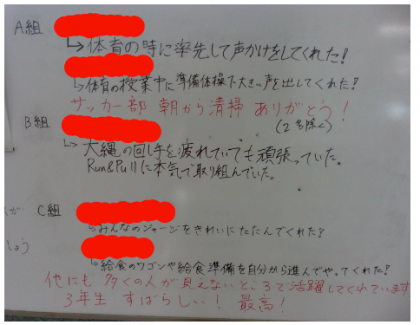 A組
↳体育の時に率先して声かけをしてくれた!
↳体育の授業中に準備体操で大きく声を出してくれた!
サッカー部 朝から清掃 ありがとう!
B組
(2名除く)
↳大縄の回し手を疲れていても頑張っていた。
Run&Pullに本気で取り組んでいた。
C組
↳みんなのジャージをきれいにたたんでくれた!
↳給食のワゴンや給食準備を自分から進んでやってくれた!
他にも多くの人が見えないところで活躍してくれています
3年生 すばらしい! 最高!